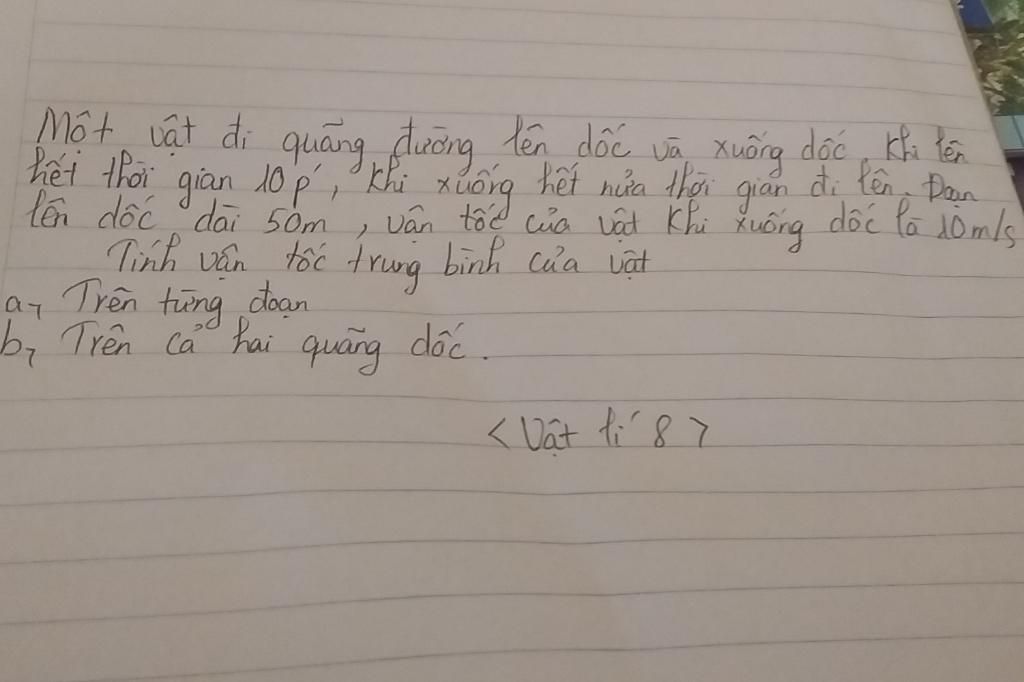 Một vật đi quãng đường lên dốc và xuống dốc. Khi lên
hết thời gian 10p', khi xuống hết nửa thời gian đi lên. Đoạn
lên dốc dài 50m, vận tốc của vật khi xuống dốc là 10m/s
Tính vận tốc trung bình của vật
a, Trên từng đoạn
b, Trên cả hai quãng dốc.
<Vật lí 8>